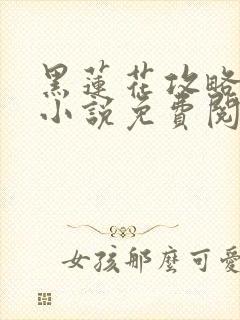 黑蓮花攻略
小說免費閱
女孩那麼可愛